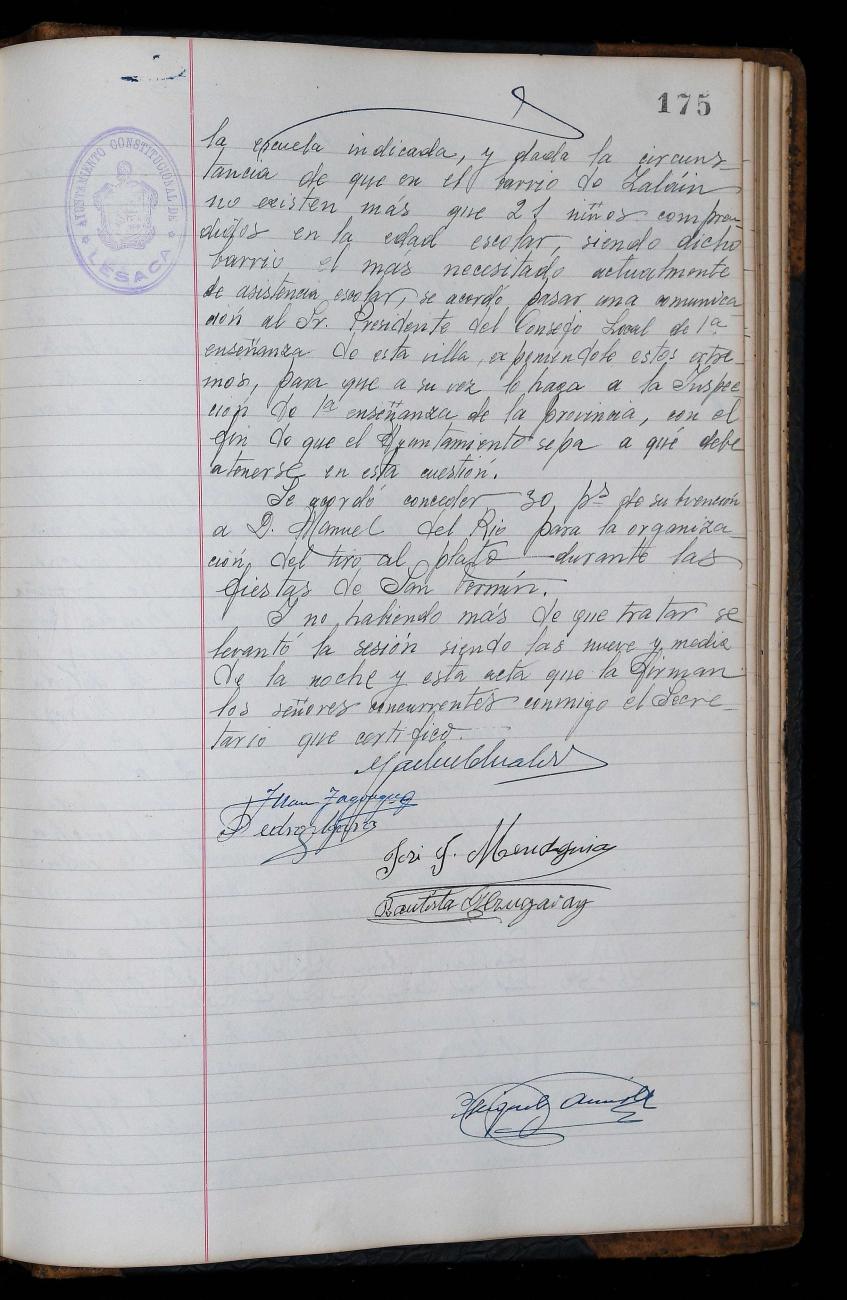 175
AYUNTAMIENTO CONSTITUCIONAL DE
LESACA
la escuela indicada, y dada la circuns-
tancia de que en el barrio de Zaláin
no existen más que 21 niños compren-
didos en la edad escolar, siendo dicho
barrio el más necesitado actualmente
de asistencia escolar, se acordó, pasar una comunica-
ción al Sr. Presidente del Consejo Local de 1ª
enseñanza de esta villa, exponiéndole estos extre-
mos, para que a su vez lo haga a la Inspec-
ción de 1ª enseñanza de la provincia, con el
fin de que el Ayuntamiento sepa a qué debe
atenerse en esta cuestión.
Se acordó conceder 30 pts de subvención
a D. Manuel del Rio para la organiza-
ción del tiro al plato durante las
fiestas de San Fermín.
Y no habiendo más de que tratar se
levantó la sesión siendo las nueve y media
de la noche y esta acta que la firman
los señores concurrentes conmigo el Secre-
tario que certifico.
Juan
Pedro
José J. Mendiguia
Bautista